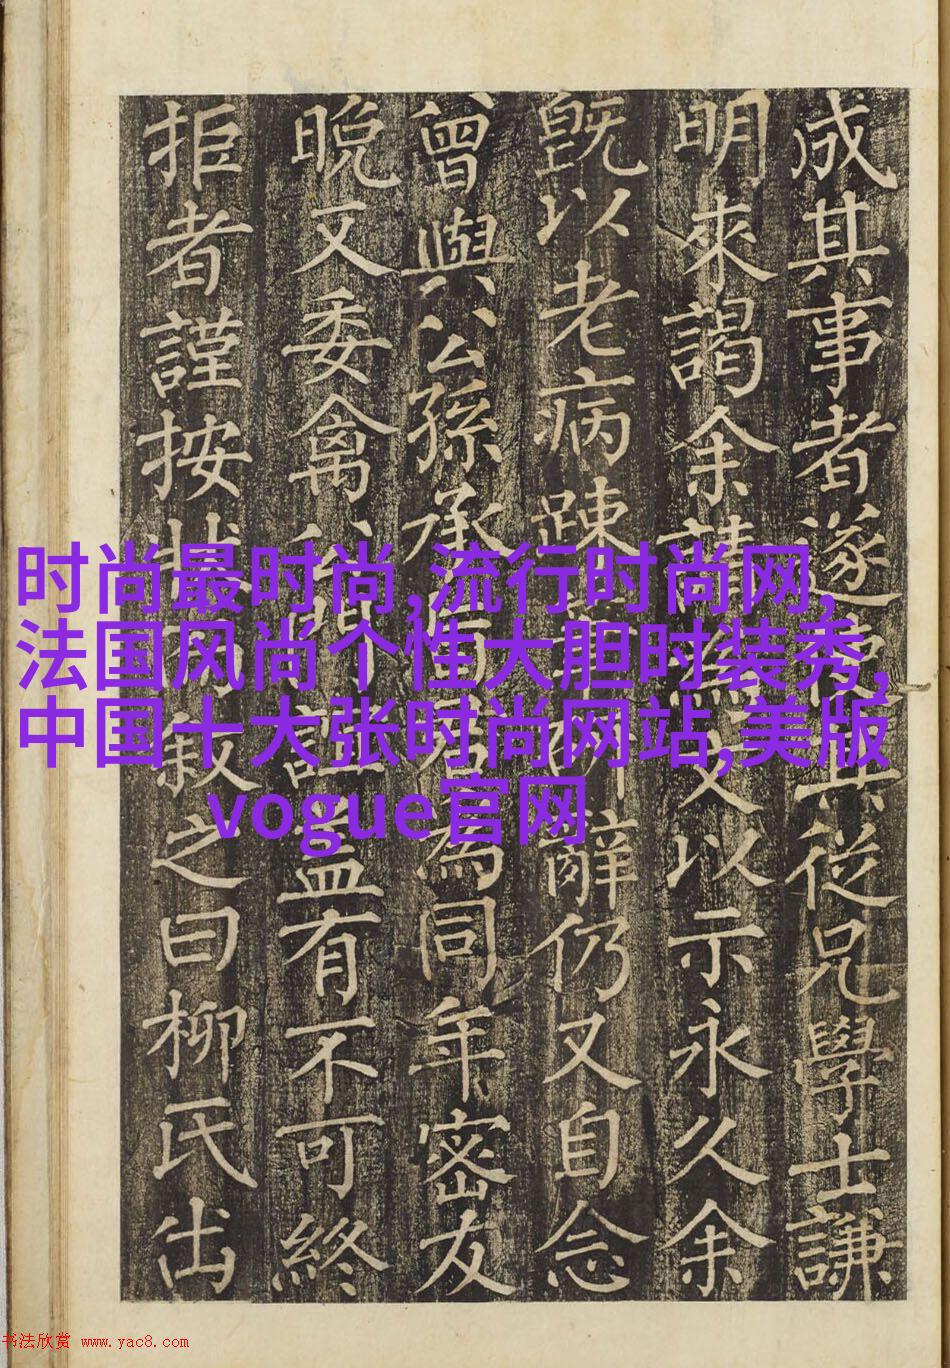 时尚最时尚,流行时尚网,
法国风尚个性大胆时装秀,
中国十大张时尚网站,美版
vogue官网
成其事者遂其從兄學士謙
明來謁余請為文以示永久余
既以老病踈辭仍又自念
曾與公孫承為同年密友
晚又委禽誼有不可終
拒者謹按狀敘之曰柳氏出
书法欣赏 www.yac8.com